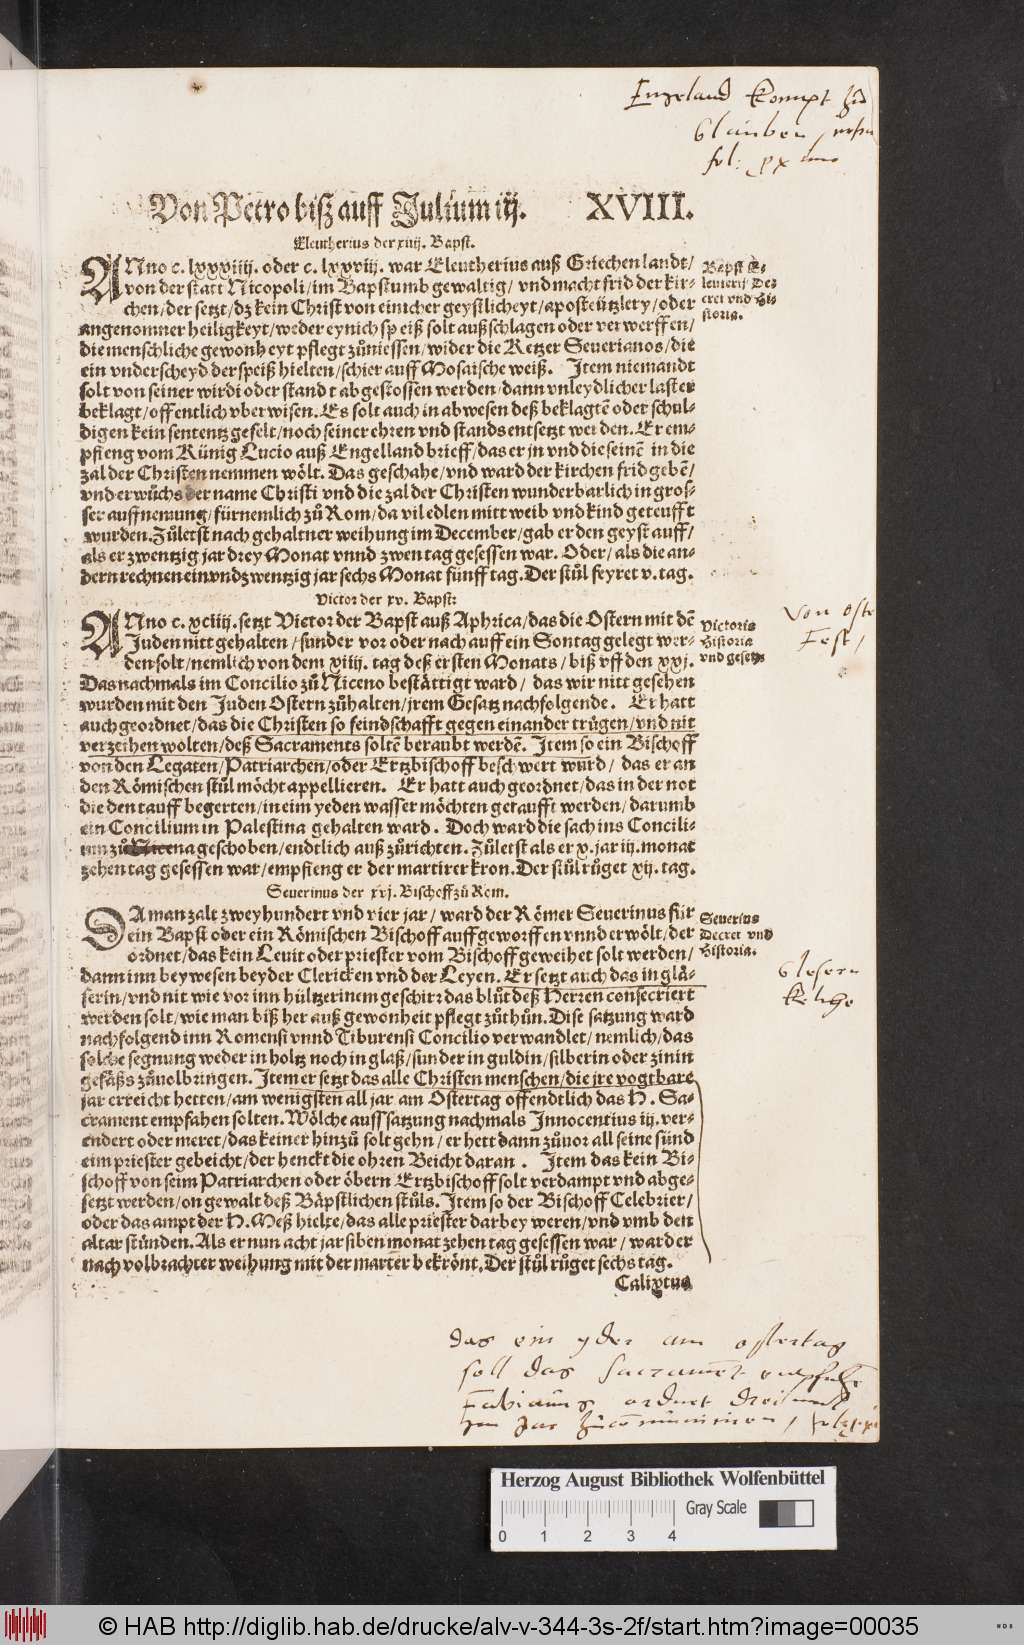 Engeland kompt zů
Glauben,
fol:
Von Petro biß auff Julium iij. XVIII.
Eleutherius der xiiij. Bapst.
ANno c. lxxviiij. oder c. lxxviij. war Eleutherius auß Griechenlandt/
von der statt Nicopoli/ im Bapstumb gewaltig/ vnd macht frid der kir-
chen/ der setzt/ dz kein Christ von einicher geystlicheyt/ aposteützlery/ oder
angenomner heiligkeyt/ weder eynich speiß solt außschlagen oder verwerffen/
die menschliche gewonheyt pflegt zůniessen/ wider die Ketzer Seuerianos/ die
ein vnderscheyd der speiß hielten/ schier auff Mosaische weiß. Item niemandt
solt von seiner wirdi oder standt abgestossen werden/ dann vnleydlicher laster
beklagt/ offentlich vberwisen. Es solt auch in abwesen deß beklagtē oder schul-
digen kein sententz gefelt/ noch seiner ehren vnd stands entsetzt werden. Er em-
pfieng vom Künig Lucio auß Engelland brieff/ das er jn vnd die seinē in die
zal der Christen nemmen wölt. Das geschahe/ vnd ward der kirchen frid gebē/
vnd erwůchs der name Christi vnd die zal der Christen wunderbarlich in gros-
ser auffnemung/ fürnemlich zů Rom/ da vil edlen mitt weib vnd kind geteufft
wurden. Zůletst nach gehaltner weihung im December/ gab er den geyst auff/
als er zwentzig jar drey Monat vnnd zwen tag gesessen war. Oder/ als die an-
dern rechnen ein vnd zwentzig jar sechs Monat fünff tag. Der stůl feyret v. tag.
Bapst E-
leutherij De-
cret vnd Hi-
storia.
Victor der xv. Bapst:
ANno c. xciiij. setzt Victor der Bapst auß Aphrica/ das die Ostern mit dē
Juden nitt gehalten/ sunder vor oder nach auff ein Sontag gelegt wer-
den solt/ nemlich von dem xiiij. tag deß ersten Monats/ biß vff den xxj.
Das nachmals im Concilio zů Niceno bestättigt ward/ das wir nitt gesehen
wurden mit den Juden Ostern zůhalten/ jrem Gesatz nachfolgende. Er hatt
auch geordnet/ das die Christen so feindschafft gegen einander trůgen/ vnd nit
verzeihen wolten/ deß Sacraments soltē beraubt werdē. Item so ein Bischoff
von den Legaten/ Patriarchen/ oder Ertzbischoff beschwert wurd/ das er an
den Römischen stůl möcht appellieren. Er hatt auch geordnet/ das in der not
die den tauff begerten/ in eim yeden wasser möchten getaufft werden/ darumb
ein Concilium in Palestina gehalten ward. Doch ward die sach ins Concili-
um zů Nicena geschoben/ endtlich auß zůrichten. Zůletst als er x. jar iij. monat
zehen tag gesessen war/ empfieng er der martirer kron. Der stůl růget xij. tag.
Victoris
Historia
vnd gesetz
Von Oster
Fest,
Seuerinus der xvj. Bischoff zů Rom.
DA man zalt zweyhundert vnd vier jar/ ward der Römer Seuerinus für
ein Bapst oder ein Römischen Bischoff auffgeworffen vnnd erwölt/ der
ordnet/ das kein Leuit oder priester vom Bischoff geweihet solt werden/
dann inn beywesen beyder Clericken vnd der Leyen. Er setzt auch das in glä-
serin/ vnd nit wie vor inn hültzerinem geschirr das blůt deß Herren consecriert
werden solt/ wie man biß her auß gewonheit pflegt zůthůn. Dise satzung ward
nachfolgend inn Romensi vnnd Tiburensi Concilio verwandlet/ nemlich/ das
solche segnung weder in holtz noch in glaß/ sunder in guldin/ silberin oder zinin
gefäßs zůuolbringen. Item er setzt das alle Christen menschen/ die jre vogtbare
jar erreicht hetten/ am wenigsten all jar am Ostertag offendtlich das H. Sa-
crament empfahen solten. Wölche auffsatzung nachmals Innocentius iij. ver-
endert oder meret/ das keiner hinzů solt gehn/ er hett dann zůuor all seine sünd
eim priester gebeicht/ der henckt die ohren Beicht daran. Item das kein Bi-
schoff von seim Patriarchen oder öbern Ertzbischoff solt verdampt vnd abge-
setzt werden/ on gewalt deß Bäpstlichen stůls. Item so der Bischoff Celebrier/
oder das ampt der H. Meß hielte/ das alle priester darbey weren/ vnd vmb den
altar stůnden. Als er nun acht jar siben monat zehen tag gesessen war/ ward er
nach volbrachter weihung mit der marter bekrönt. Der stůl růget sechs tag.
Calixtus
Seuerius
Decret vnd
Historia.
Glesern
Kelche
das ein yder am ostertag
soll das Sacramēt empfahē
Fabianus ordnet dreimal
im Jar zů communiciren,
Herzog August Bibliothek Wolfenbüttel
Gray Scale
0 1 2 3 4
© HAB http://diglib.hab.de/drucke/alv-v-344-3s-2f/start.htm?image=00035